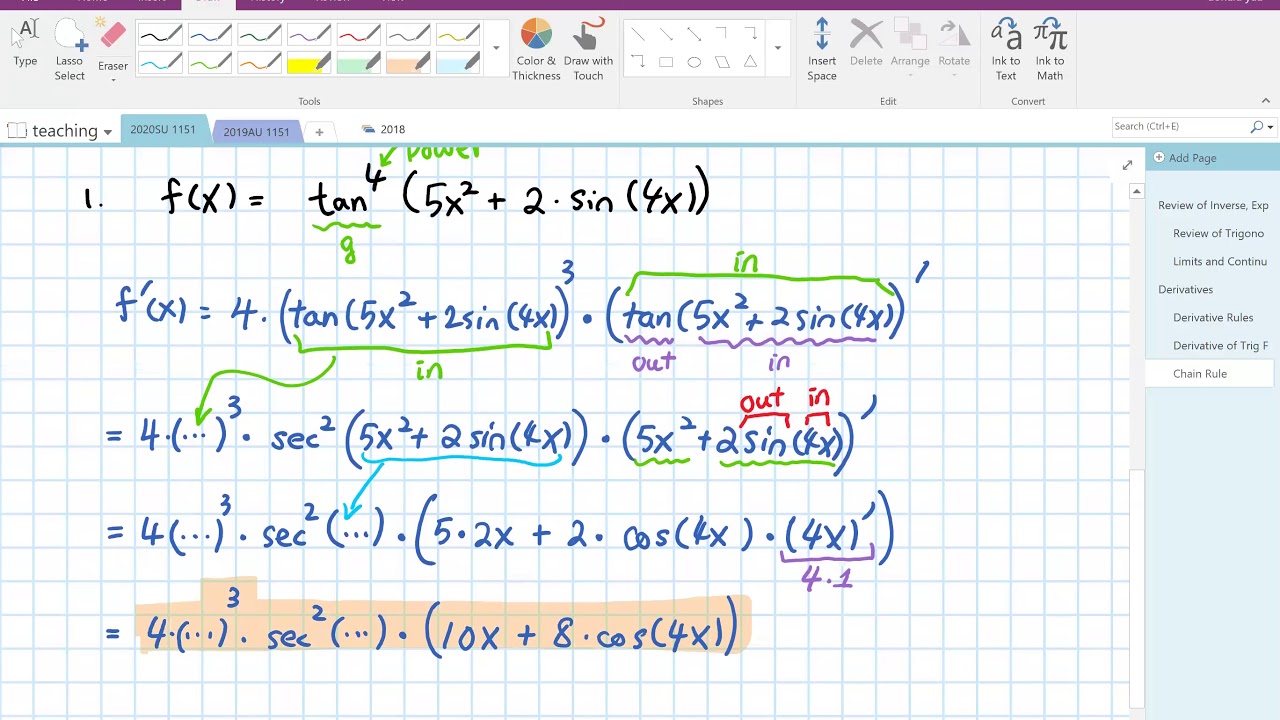 Home Draw History Review View
Type Lasso Select Eraser Color & Thickness Draw with Touch Insert Space Delete Arrange Rotate Ink to Text Ink to Math
Tools Shapes Edit Convert
teaching 2020SU 1151 2019AU 1151 + 2018 Search (Ctrl+E)
Add Page
Review of Inverse, Exp
Review of Trigono
Limits and Continu
Derivatives
Derivative Rules
Derivative of Trig F
Chain Rule
power
1. f(x) = tan⁴ (5x² + 2 · sin (4x))
g
in
f'(x) = 4 · (tan(5x² + 2sin(4x))³ · (tan(5x² + 2sin(4x))'
in out in
out in
= 4·(···)³ · sec² (5x² + 2sin(4x)) · (5x² + 2sin(4x))'
= 4(···)³ · sec² (···) · (5·2x + 2 · cos(4x) · (4x)')
4·1
= 4·(···)³ · sec² (···) · (10x + 8 · cos(4x))